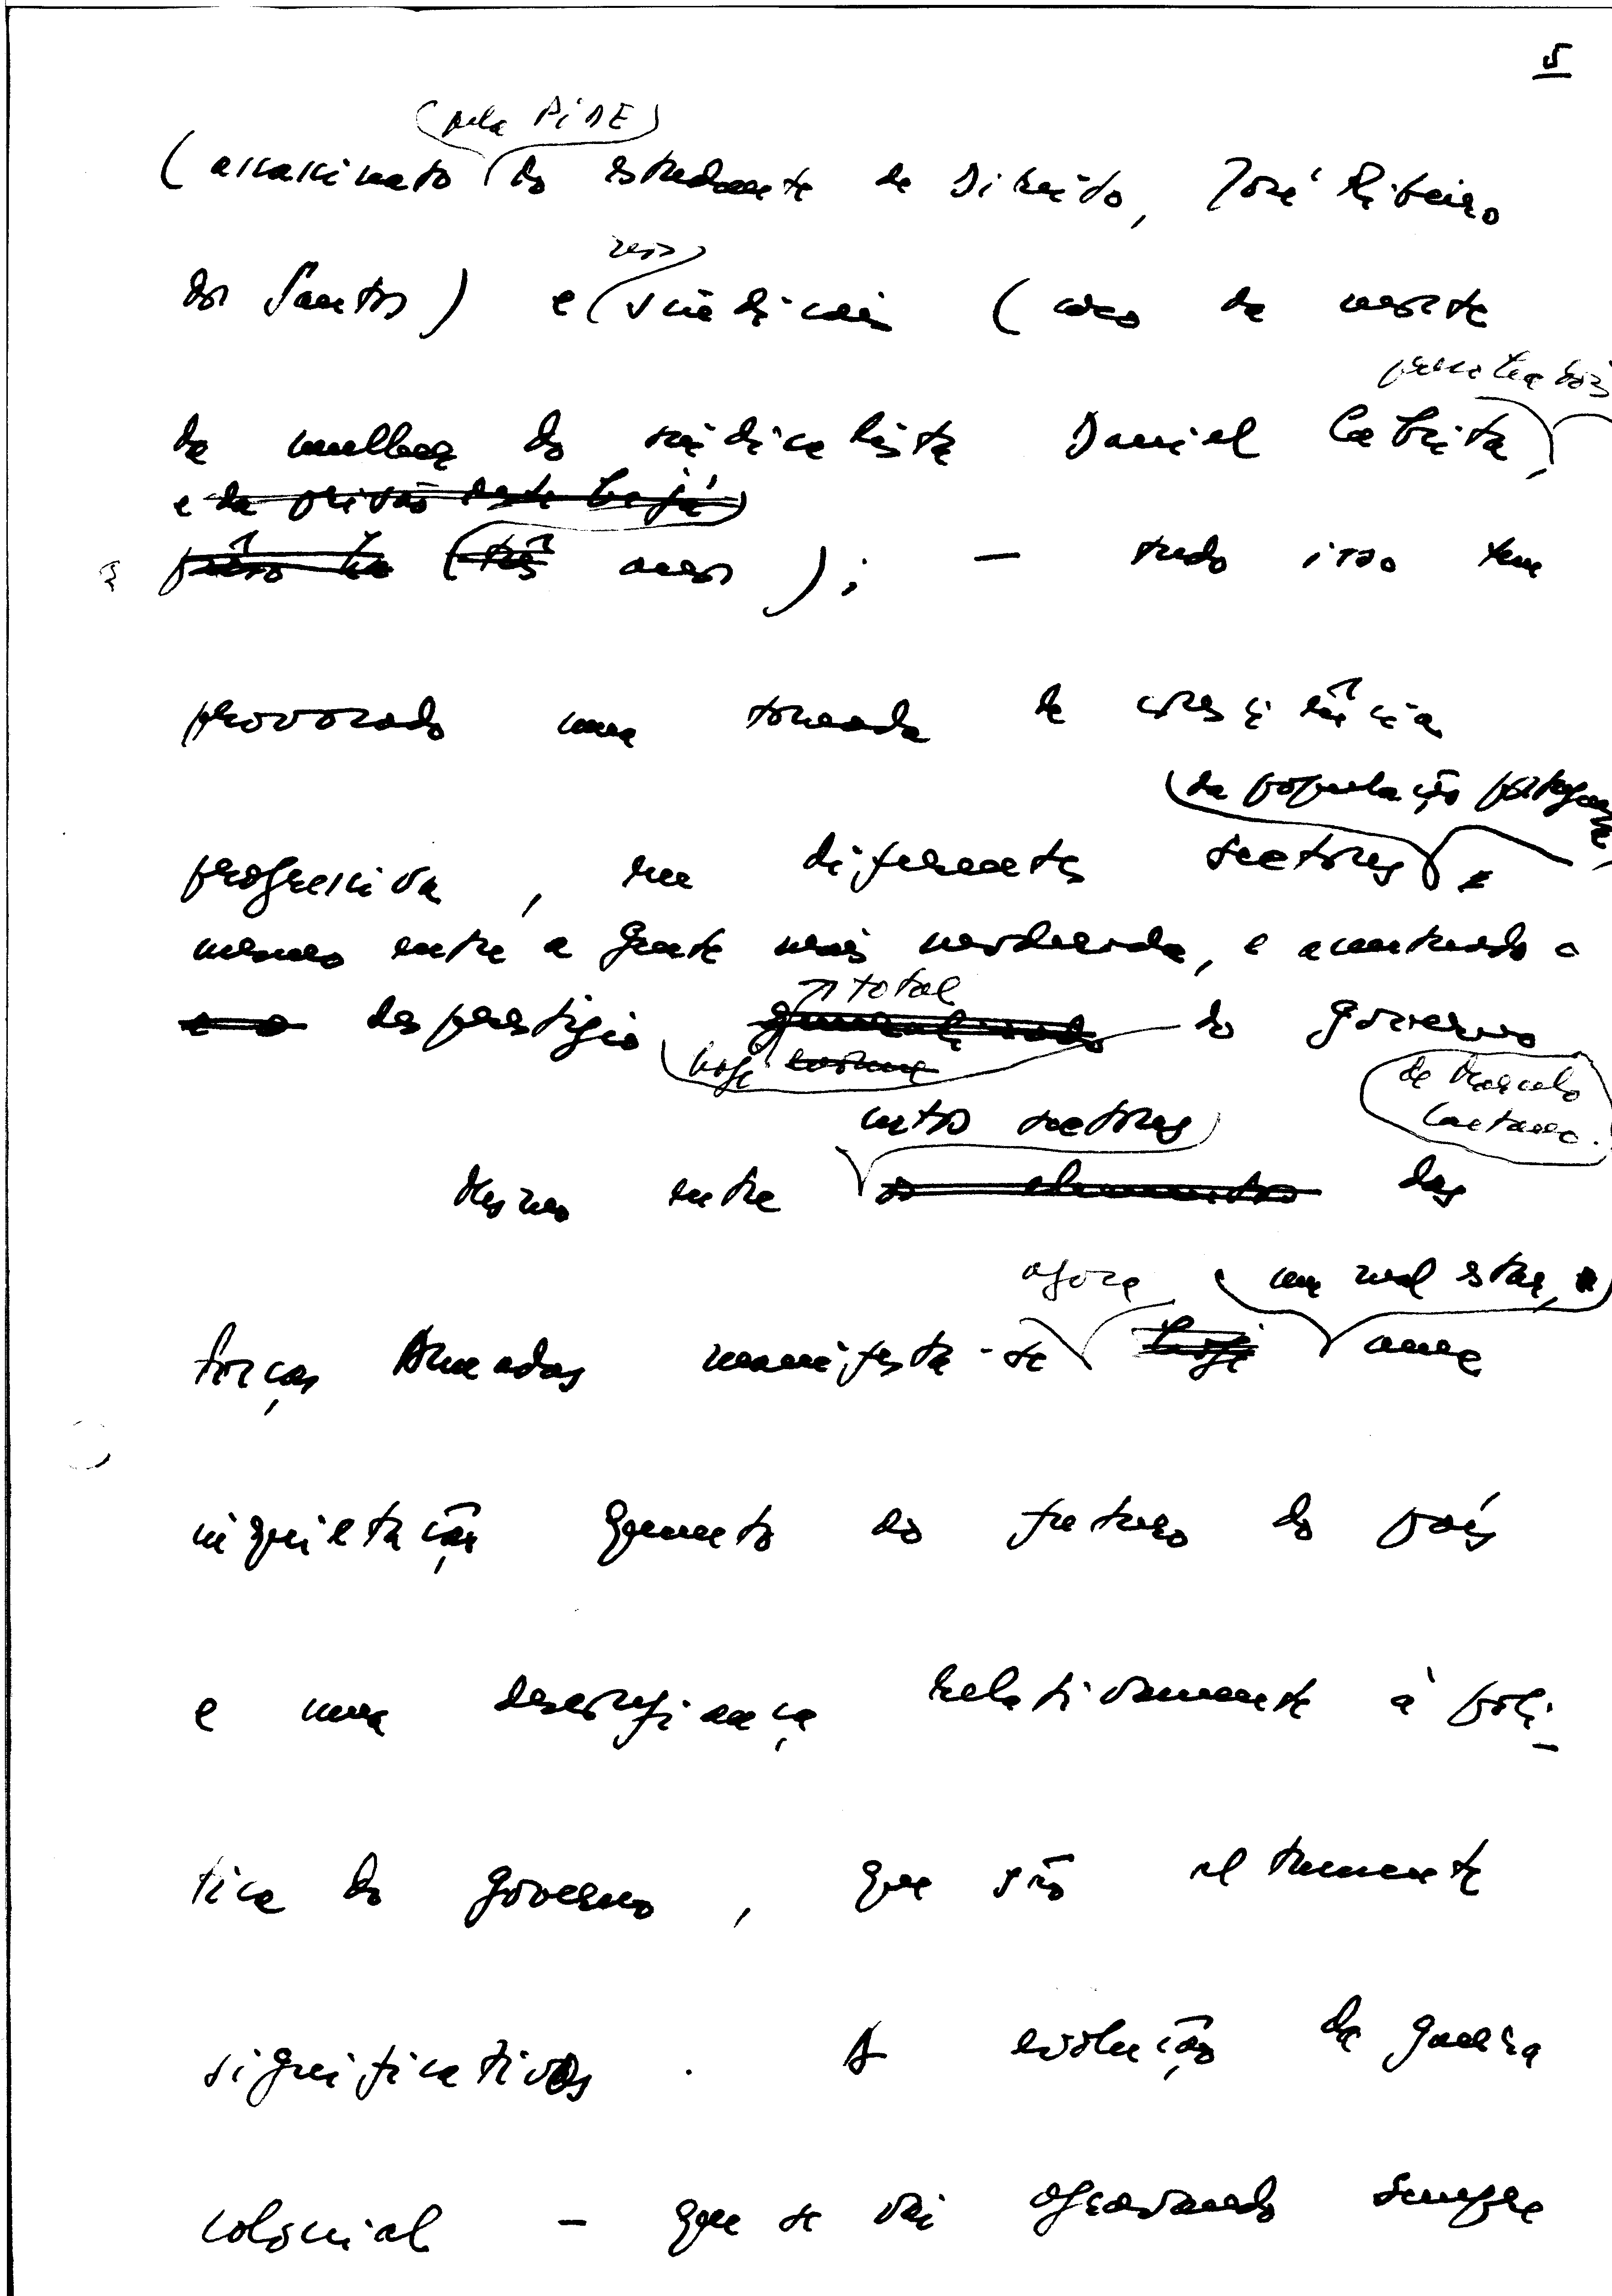 5
(pela PIDE)
(assassinato do estudante de Direito, José Ribeiro
dos Santos) e sindicais (caso da morte
da mulher do sindicalista Daniel Cabrita,
e da prisão deste há já
três anos); — tudo isso tem
provocado uma tomada de consciência
da população portuguesa,
progressiva, em diferentes sectores
mesmo entre a gente mais moderada, e acentuado o
total
e o desprestígio generalizado do governo
hoje
de Marcelo
Caetano.
certos sectores
Mesmo entre os elementos das
agora um mal estar,
Forças Armadas manifesta-se hoje uma
inquietação quanto ao futuro do país
e uma desconfiança relativamente à polí-
tica do governo, que são altamente
significativos. A evolução da guerra
colonial — que se vai agravando sempre